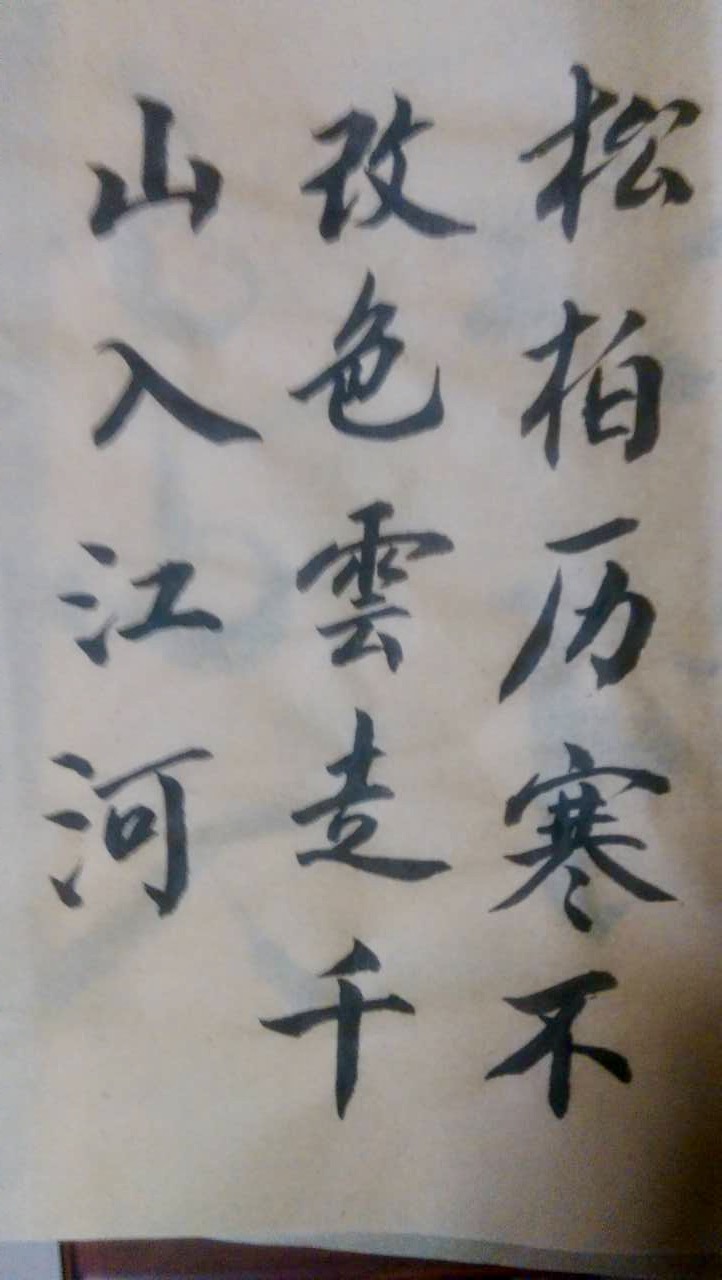 松柏历寒不
改色雲走千
山入江河